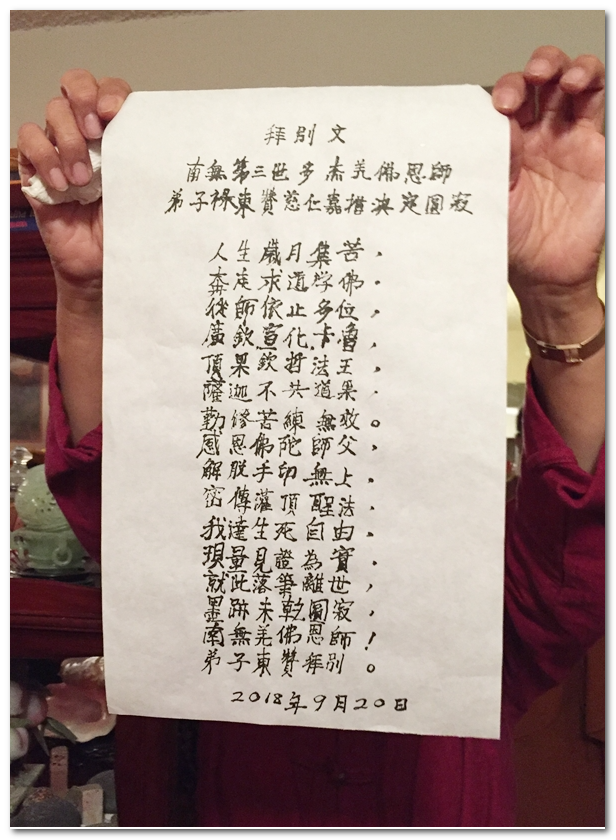 拜別文
南無第三世多杰羌佛恩師
弟子祿東贊慈仁嘉措決定圓寂
人生歲月集苦，
奔走求道學佛，
從師依止多位，
廣欽宣化卡魯，
頂果欽哲法王，
薩迦不共道果，
勤修苦練無效。
感恩佛陀師父，
解脫手印無上，
密傳灌頂聖法，
我達生死自由，
現量見證為實，
就此落筆離世，
墨跡未乾圓寂，
南無羌佛恩師！
弟子東贊拜別。
2018年9月20日